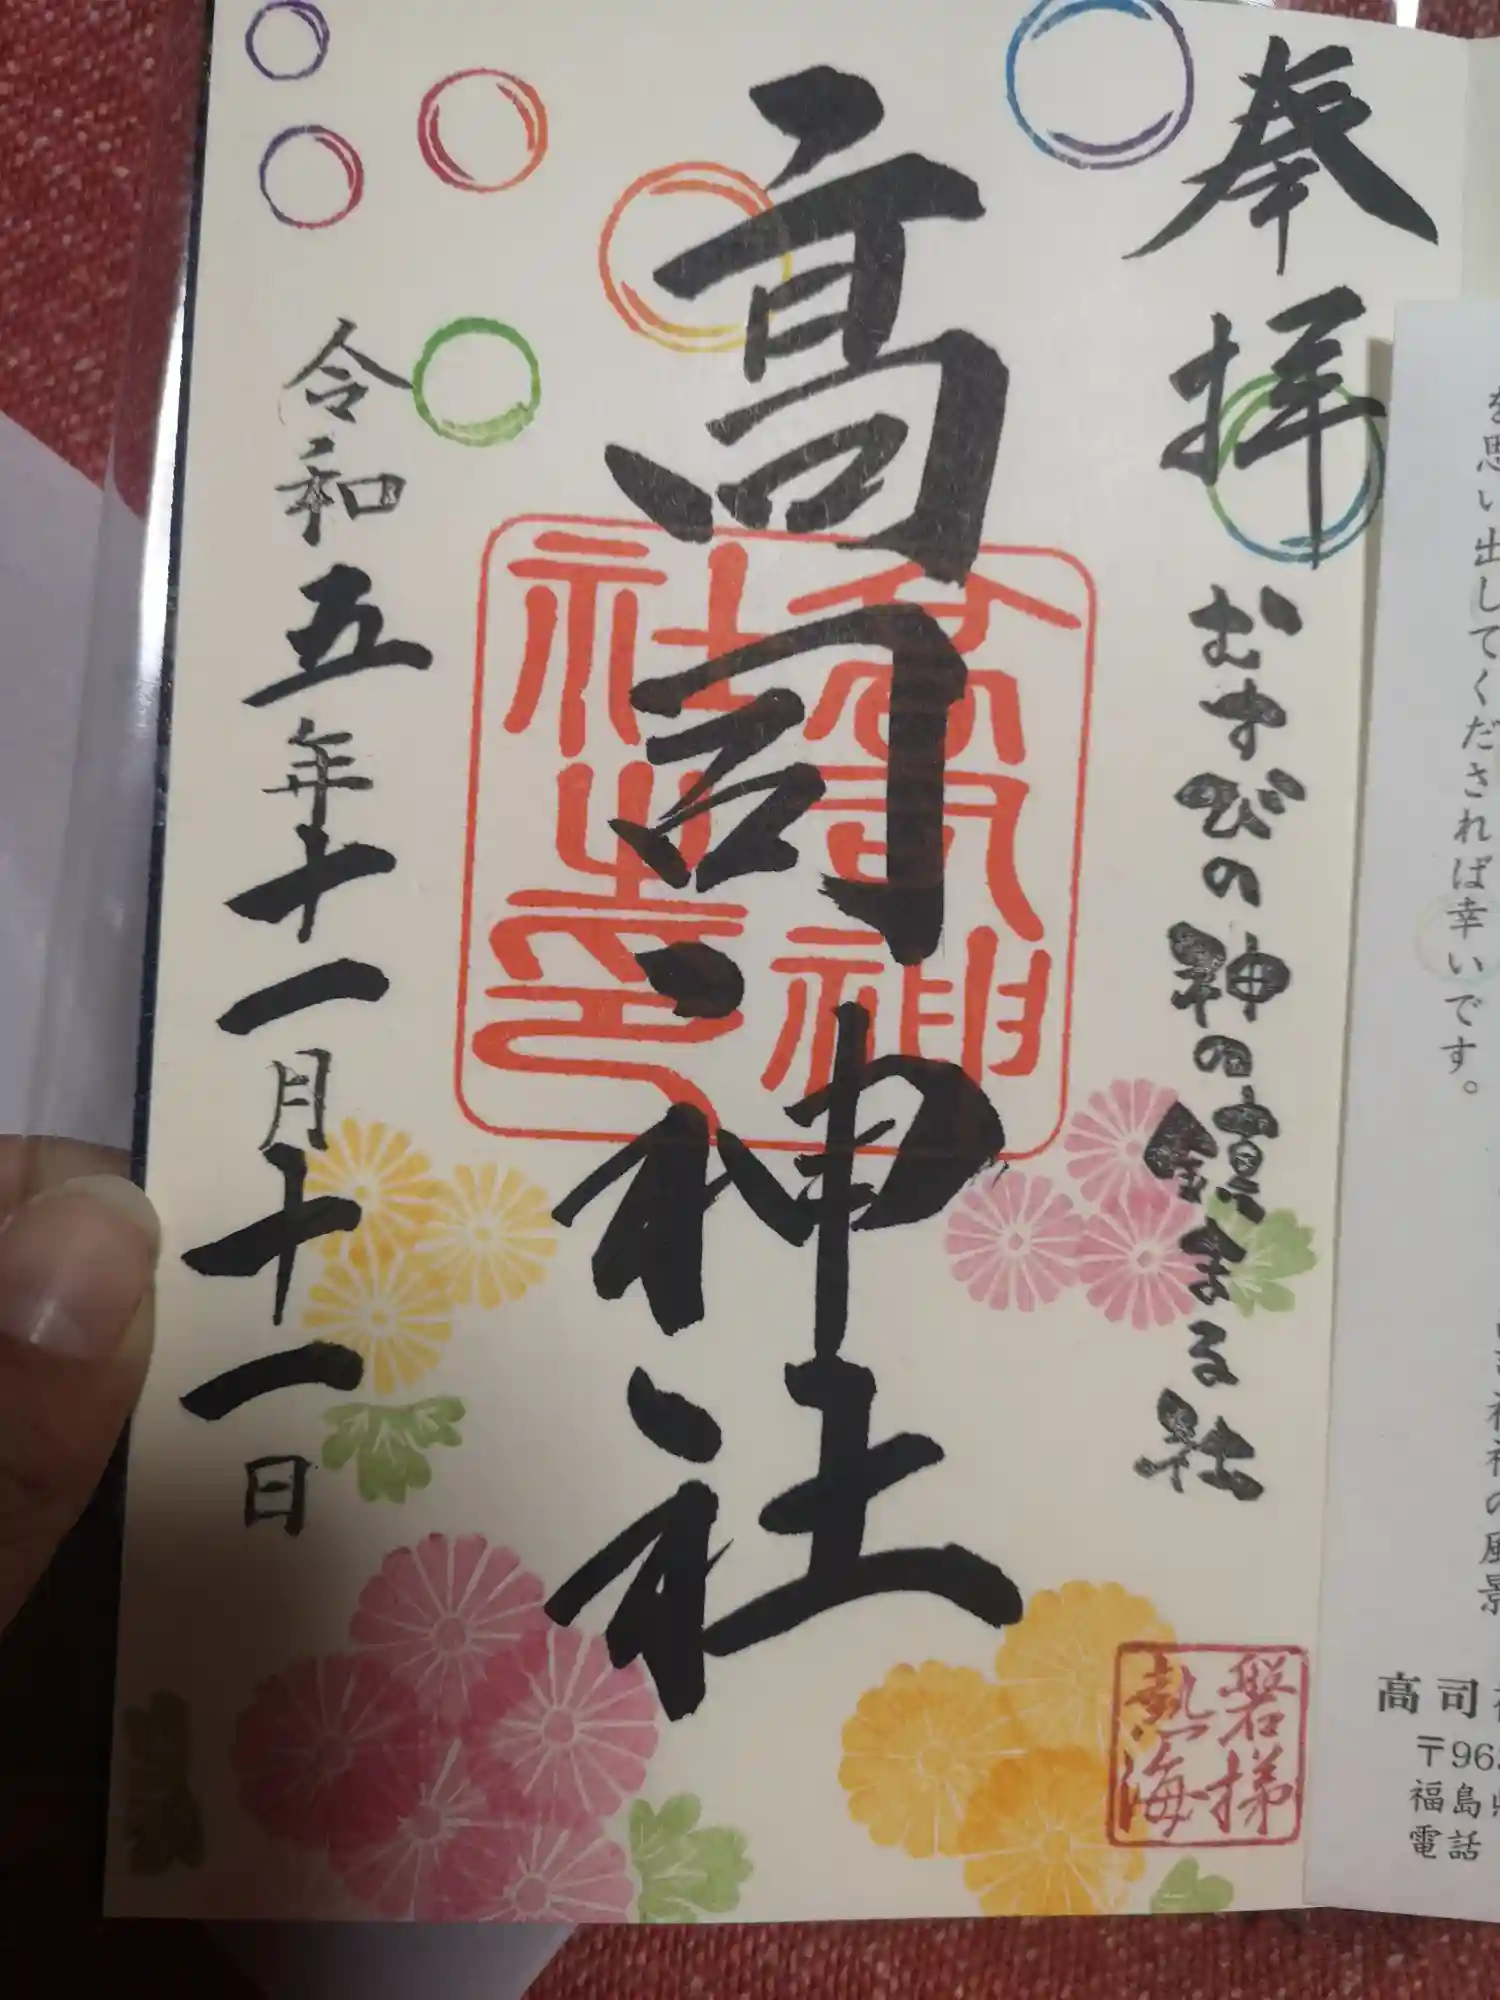 奉拝
むすびの神の鎮まる社
高司神社
高司神社之印
令和五年十一月十一日
磐梯
熱海
を思い出してくだされば幸いです。
の風景
高司
〒96
福島県
電話